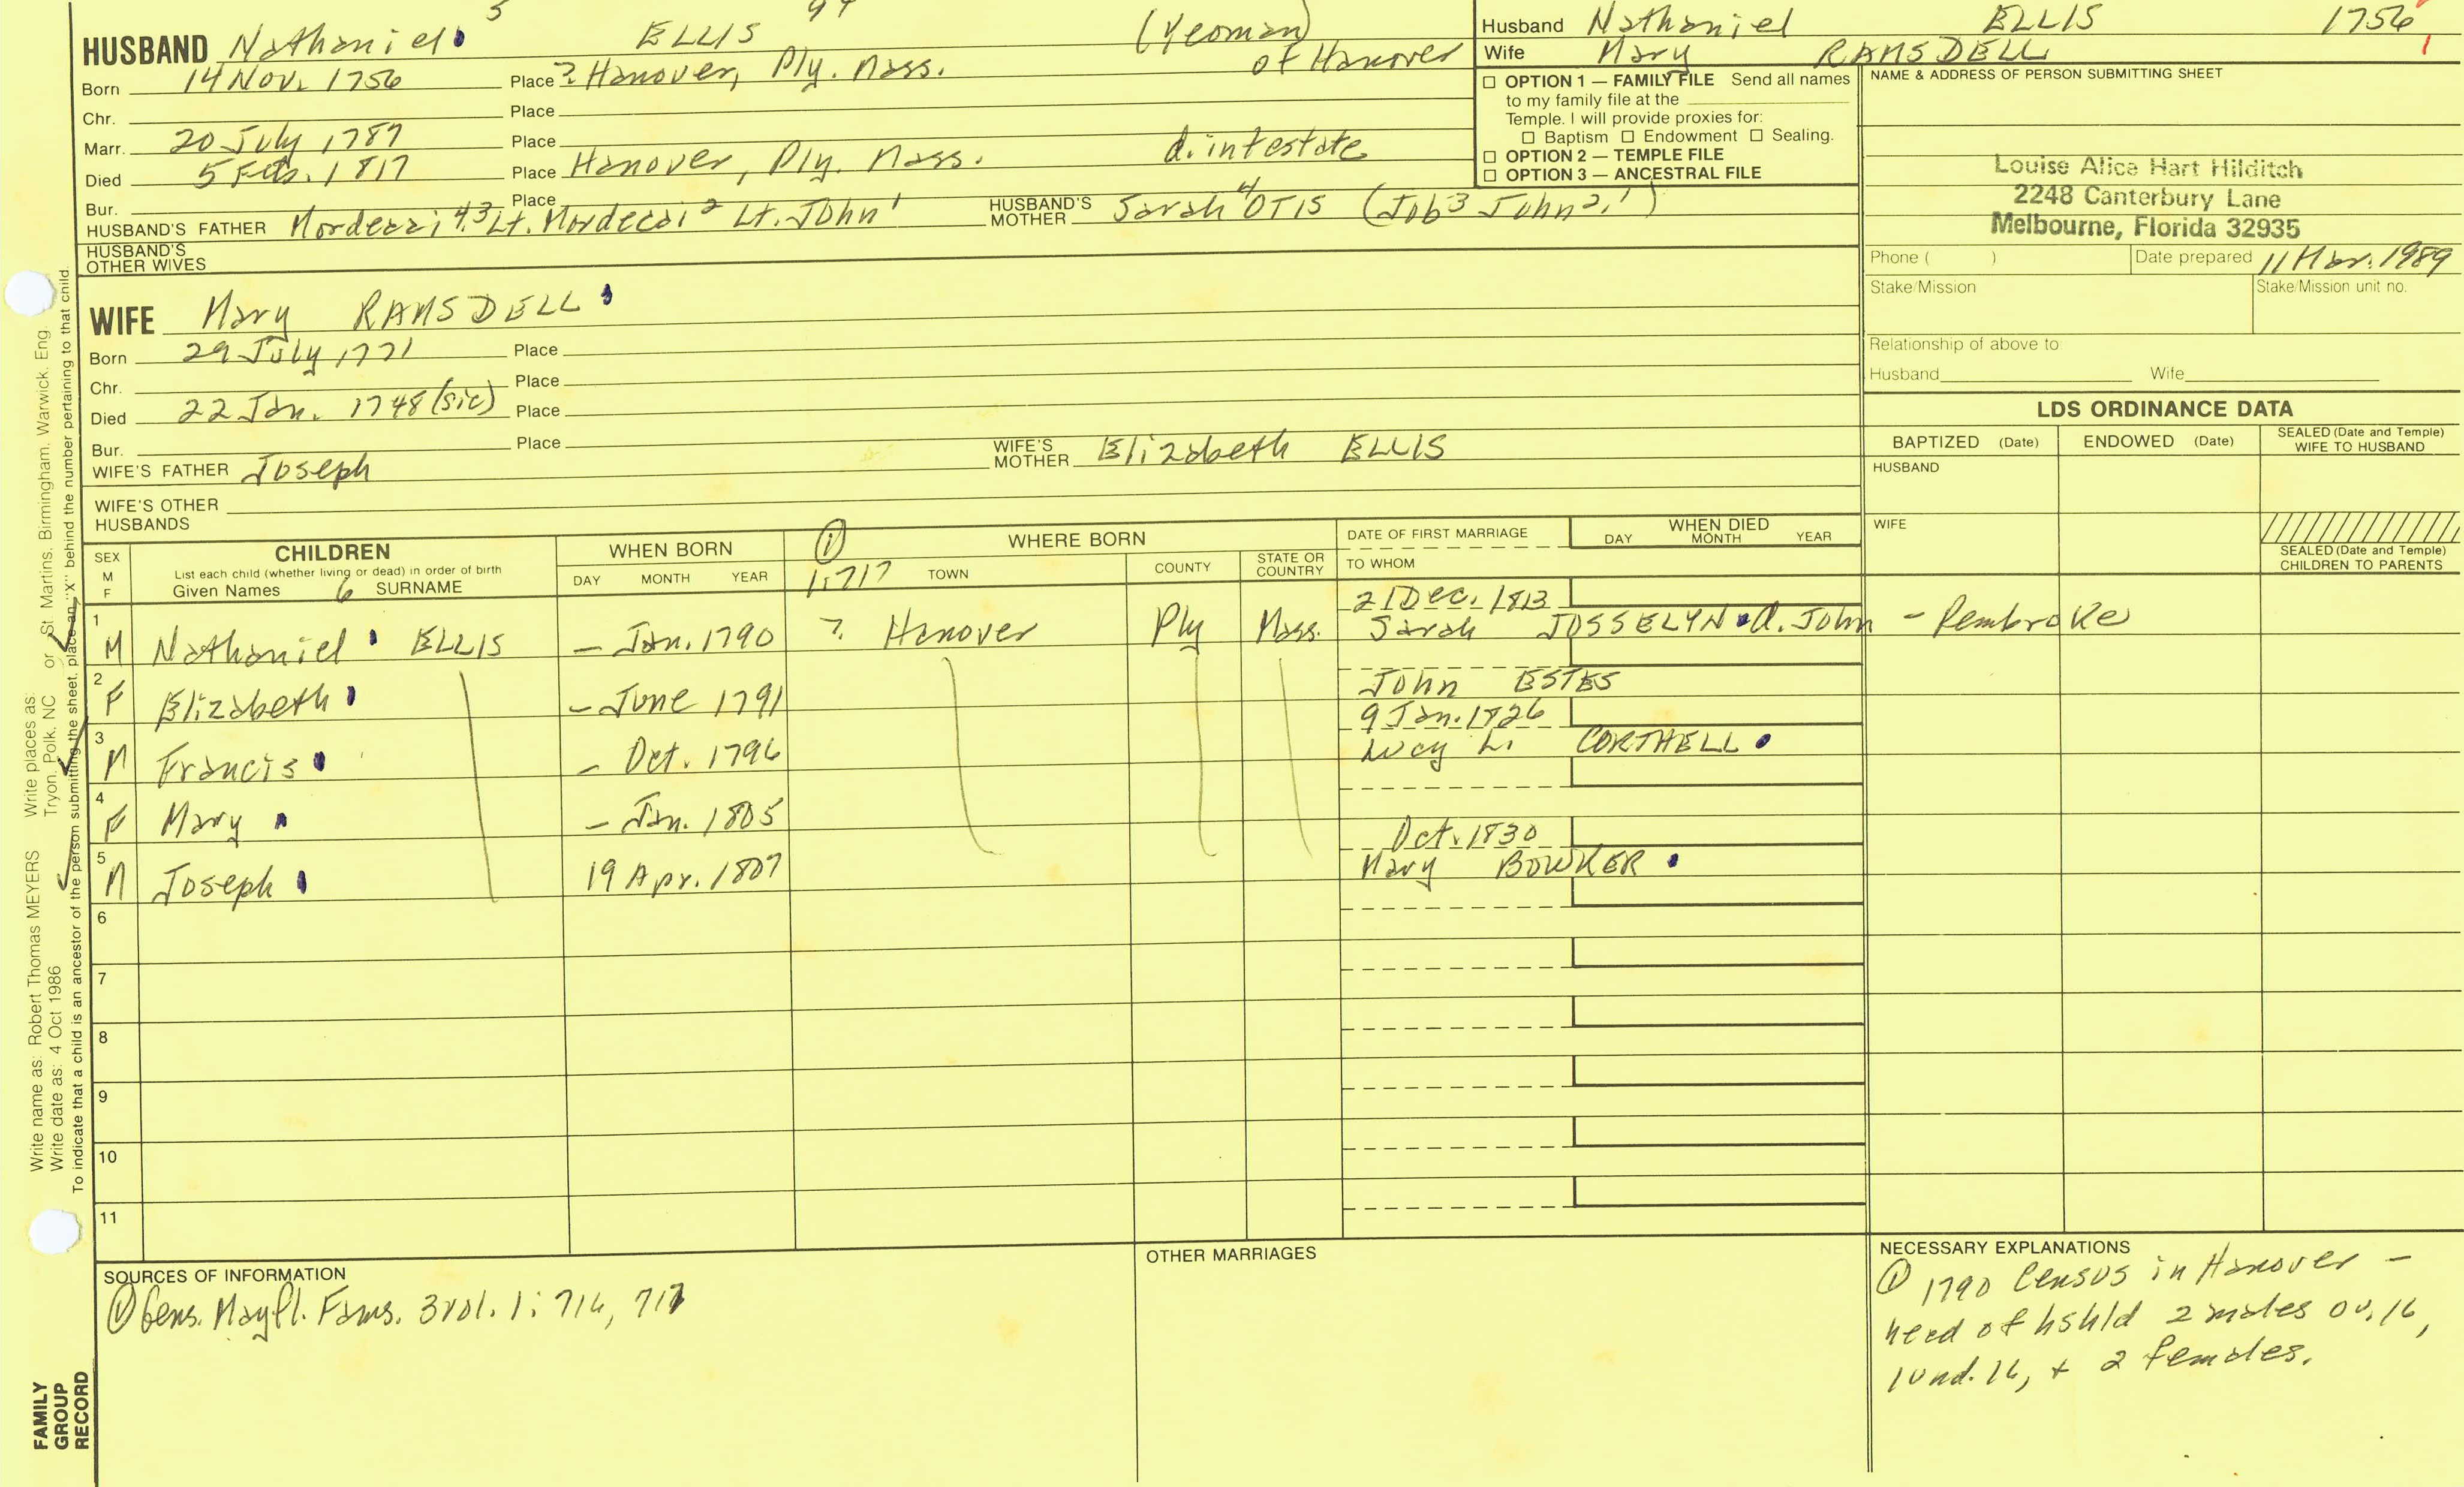 HUSBAND Nathaniel 5 ELLIS (Yeoman) of Hanover
Born 14 Nov. 1756 Place ? Hanover, Ply. Mass.
Chr. Place
Marr. 20 July 1787 Place
Died 5 Feb. 1817 Place Hanover, Ply. Mass. d. intestate
Bur. Place
HUSBAND'S FATHER Mordecai 4,3 Lt. Mordecai 2 Lt. John 1 HUSBAND'S MOTHER Sarah 4 OTIS (Job 3 John 2,1)
HUSBAND'S OTHER WIVES
WIFE Mary RAMSDELL
Born 29 July 1771 Place
Chr. Place
Died 22 Jan. 1748 (sic) Place
Bur. Place
WIFE'S FATHER Joseph WIFE'S MOTHER Elizabeth ELLIS
WIFE'S OTHER HUSBANDS
Husband Nathaniel ELLIS 1756
Wife Mary RAMSDELL 1
OPTION 1 — FAMILY FILE Send all names
to my family file at the
Temple. I will provide proxies for:
Baptism Endowment Sealing.
OPTION 2 — TEMPLE FILE
OPTION 3 — ANCESTRAL FILE
NAME & ADDRESS OF PERSON SUBMITTING SHEET
Louise Alice Hart Hilditch
2248 Canterbury Lane
Melbourne, Florida 32935
Phone ( ) Date prepared 11 Mar. 1989
Stake/Mission Stake/Mission unit no.
Relationship of above to:
Husband Wife
LDS ORDINANCE DATA
BAPTIZED (Date) ENDOWED (Date) SEALED (Date and Temple) WIFE TO HUSBAND
HUSBAND
WIFE
SEALED (Date and Temple) CHILDREN TO PARENTS
SEX M F
CHILDREN
List each child (whether living or dead) in order of birth
Given Names 6 SURNAME
WHEN BORN
DAY MONTH YEAR
① WHERE BORN
1:717 TOWN COUNTY STATE OR COUNTRY
DATE OF FIRST MARRIAGE
TO WHOM
WHEN DIED
DAY MONTH YEAR
1 M Nathaniel ELLIS — Jan. 1790 ? Hanover Ply Mass. 21 Dec. 1813
Sarah JOSSELYN d. John - Pembroke
2 F Elizabeth — June 1791
John ESTES
3 M Francis — Oct. 1796 9 Jan. 1826
Lucy L. CORTHELL
4 F Mary — Jan. 1805
5 M Joseph 19 Apr. 1807 Oct. 1830
Mary BOWKER
6
7
8
9
10
11
SOURCES OF INFORMATION
① Gens. Mayfl. Fams. 3vol. 1: 716, 717
OTHER MARRIAGES
NECESSARY EXPLANATIONS
① 1790 Census in Hanover -
head of hshld 2 males ov. 16,
1 und. 16, + 2 females.
Write name as: Robert Thomas MEYERS Write places as:
Write date as: 4 Oct 1986 Tryon, Polk, NC or St Martins, Birmingham, Warwick, Eng.
To indicate that a child is an ancestor of the person submitting the sheet, place an "X" behind the number pertaining to that child.
FAMILY
GROUP
RECORD